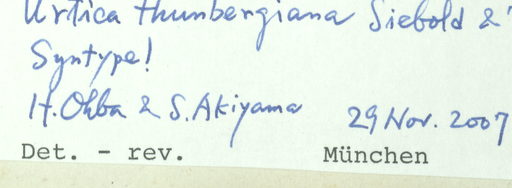 Urtica thunbergiana Siebold &
Syntype!
H. Ohba & S. Akiyama 29 Nov. 2007
Det. - rev. München